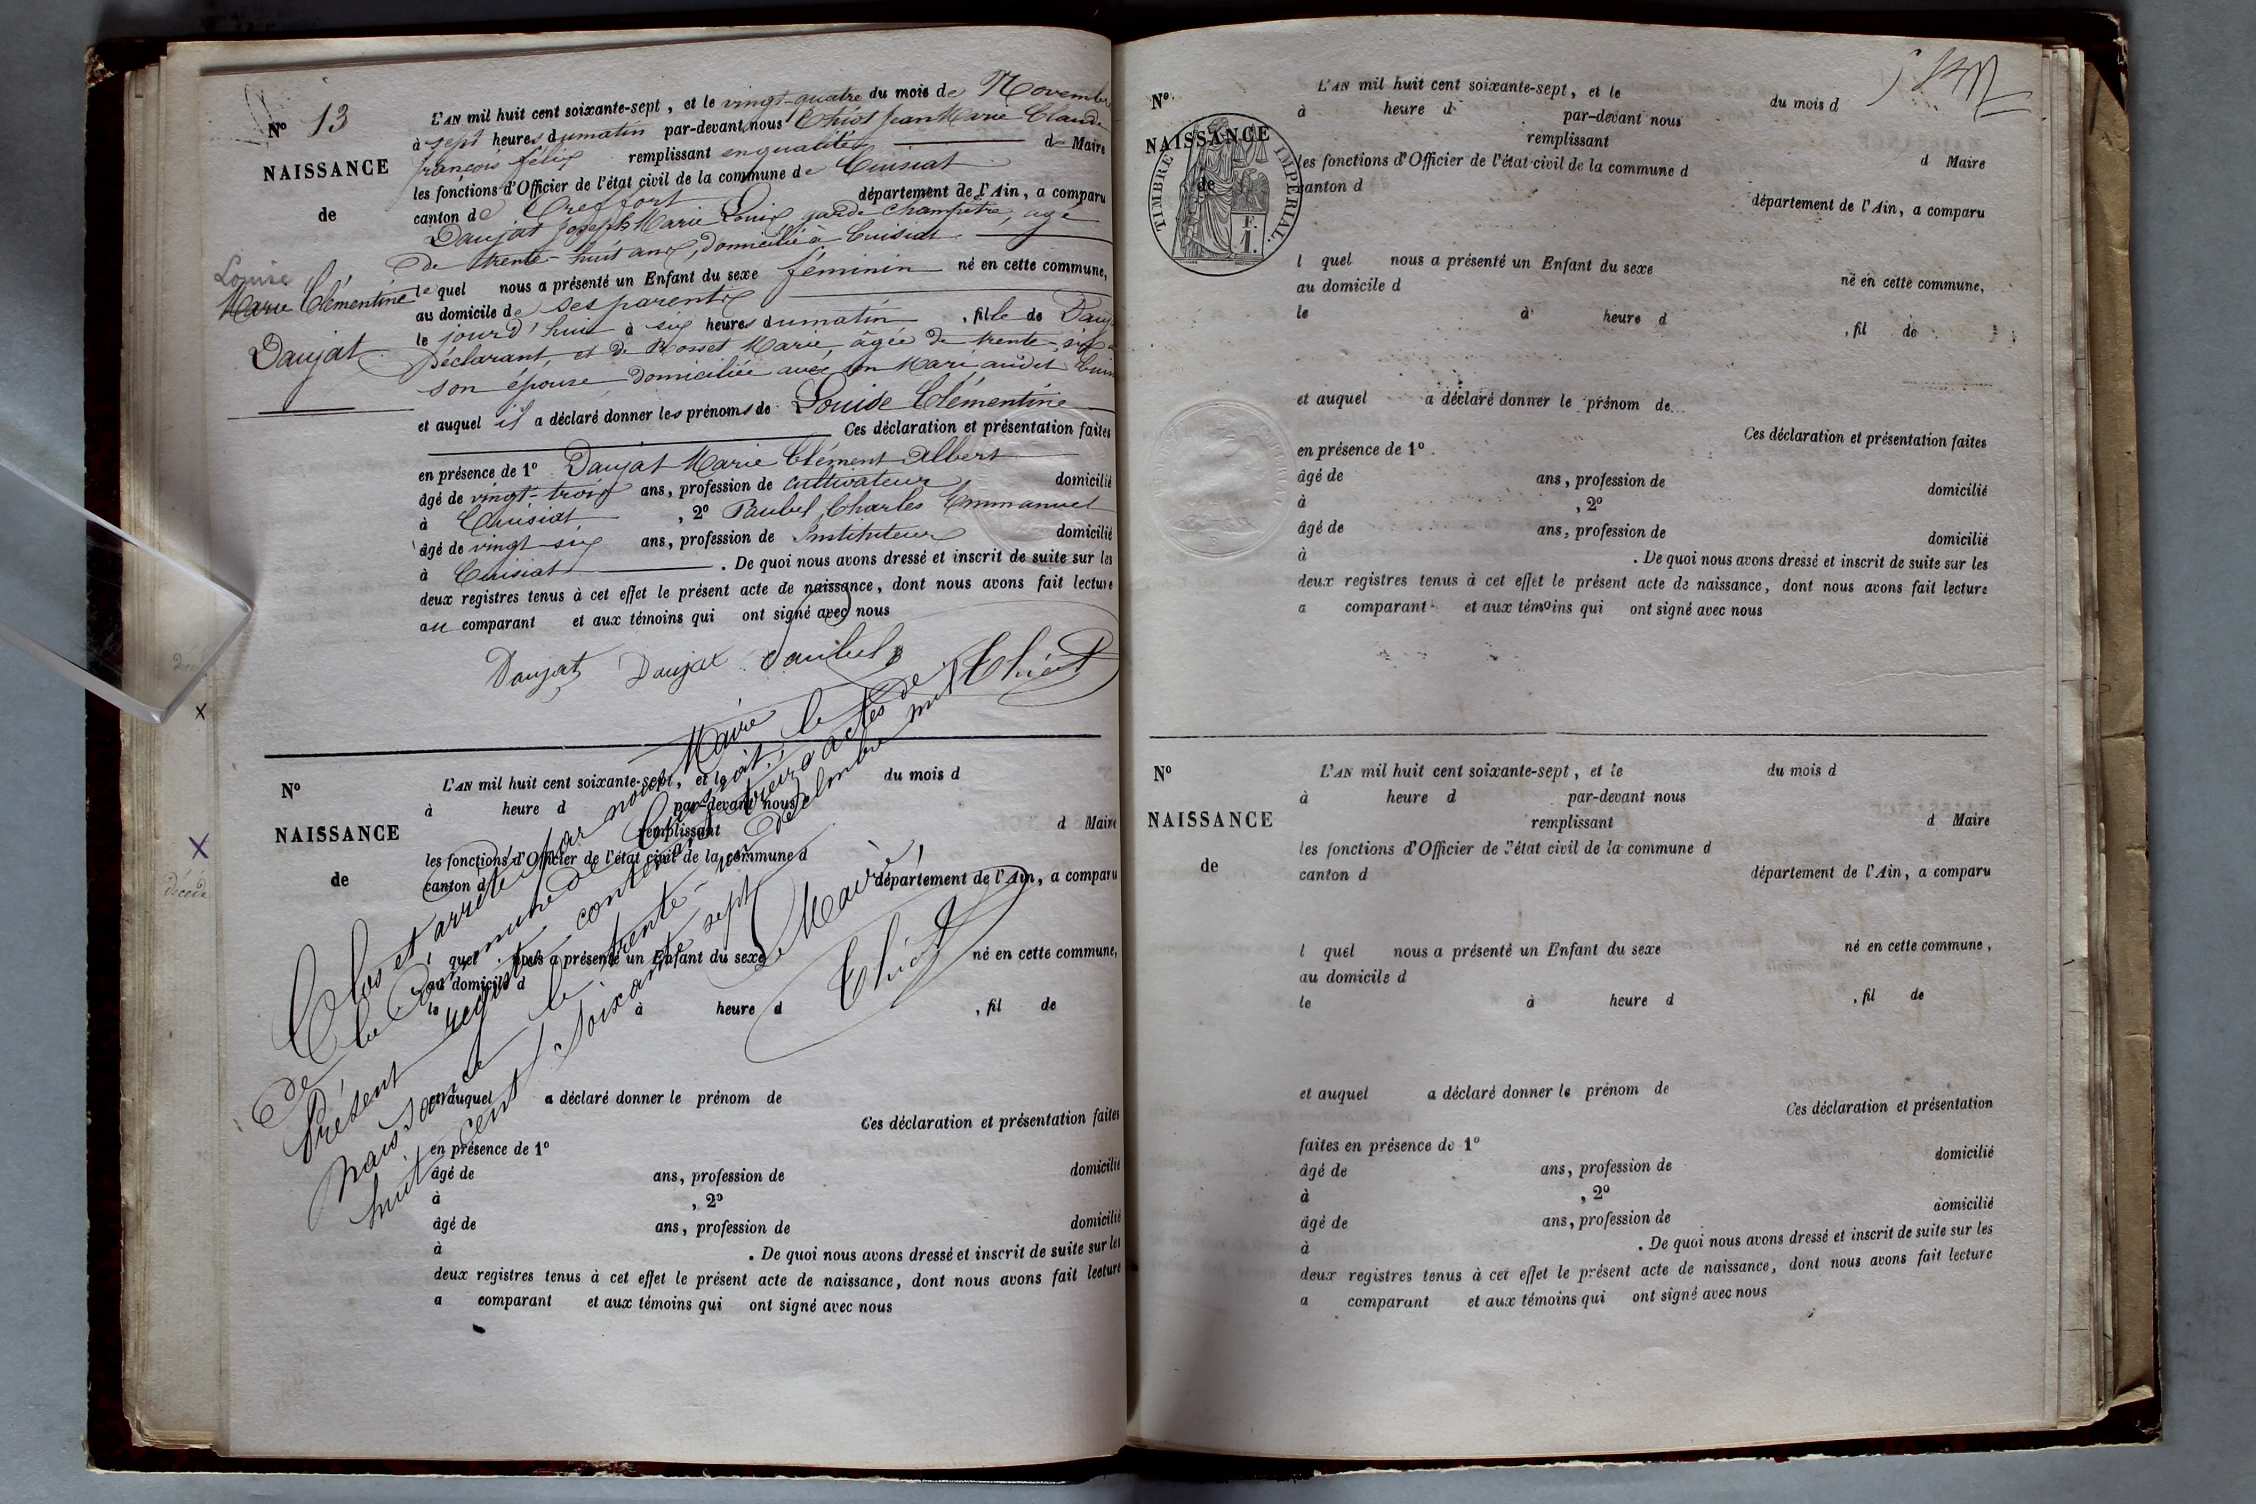 Nº 13
NAISSANCE
de
Louise
Marie Clémentine
Daujat
L'AN mil huit cent soixante-sept, et le vingt-quatre du mois de Novembre
à sept heures du matin par-devant nous Chiot Jean Marie Claude
françois félix remplissant en qualité de Maire
les fonctions d'Officier de l'état civil de la commune de Cuisiat
canton de Treffort département de l'Ain, a comparu
Daujat Joseph Marie Louis garde champêtre, agé
de trente-huit ans, domicilié à Cuisiat
lequel nous a présenté un Enfant du sexe féminin né en cette commune,
au domicile de ses parents
le jourd'hui à six heures du matin, fille de Dauj
Déclarant, et de Rosset Marie, âgée de trente-six
son épouse domiciliée avec son Mari audit Cuisi
et auquel il a déclaré donner les prénoms de Louise Clémentine
Ces déclaration et présentation faites
en présence de 1º Daujat Marie Clément Albert
âgé de vingt-trois ans, profession de cultivateur domicilié
à Cuisiat, 2º Paubel, Charles Emmanuel
âgé de vingt six ans, profession de Instituteur domicilié
à Cuisiat. De quoi nous avons dressé et inscrit de suite sur les
deux registres tenus à cet effet le présent acte de naissance, dont nous avons fait lecture
au comparant et aux témoins qui ont signé avec nous
Daujat Daujat Paubel
Chiot
Nº
NAISSANCE
de
L'AN mil huit cent soixante-sept, et le du mois d
à heure d par-devant nous
remplissant d Maire
les fonctions d'Officier de l'état civil de la commune d
canton d département de l'Ain, a comparu
l quel nous a présenté un Enfant du sexe né en cette commune,
au domicile d
le à heure d, fil de
et auquel a déclaré donner le prénom de
Ces déclaration et présentation faites
en présence de 1º
âgé de ans, profession de domicilié
à, 2º
âgé de ans, profession de domicilié
à. De quoi nous avons dressé et inscrit de suite sur les
deux registres tenus à cet effet le présent acte de naissance, dont nous avons fait lecture
a comparant et aux témoins qui ont signé avec nous
Clos et arrêté par nous Maire
de la Commune de Cuisiat, le
Présent registre contenant treize actes de
naissance le trente-un décembre mil
huit cent soixante sept
Le Maire,
Chiot
décédé
Nº
NAISSANCE
de
TIMBRE IMPÉRIAL.
F.
1.
L'AN mil huit cent soixante-sept, et le du mois d
à heure d par-devant nous
remplissant d Maire
les fonctions d'Officier de l'état civil de la commune d
canton d département de l'Ain, a comparu
l quel nous a présenté un Enfant du sexe né en cette commune,
au domicile d
le à heure d, fil de
et auquel a déclaré donner le prénom de
Ces déclaration et présentation faites
en présence de 1º
âgé de ans, profession de domicilié
à, 2º
âgé de ans, profession de domicilié
à. De quoi nous avons dressé et inscrit de suite sur les
deux registres tenus à cet effet le présent acte de naissance, dont nous avons fait lecture
a comparant et aux témoins qui ont signé avec nous
Nº
NAISSANCE
de
L'AN mil huit cent soixante-sept, et le du mois d
à heure d par-devant nous
remplissant d Maire
les fonctions d'Officier de l'état civil de la commune d
canton d département de l'Ain, a comparu
l quel nous a présenté un Enfant du sexe né en cette commune,
au domicile d
le à heure d, fil de
et auquel a déclaré donner le prénom de
Ces déclaration et présentation
faites en présence de 1º
âgé de ans, profession de domicilié
à, 2º
âgé de ans, profession de domicilié
à. De quoi nous avons dressé et inscrit de suite sur les
deux registres tenus à cet effet le présent acte de naissance, dont nous avons fait lecture
a comparant et aux témoins qui ont signé avec nous